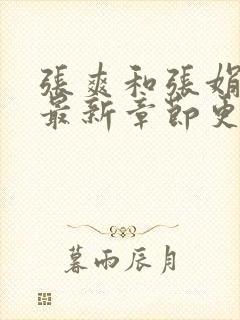 張爽和張娟
最新章節史
暮雨辰月